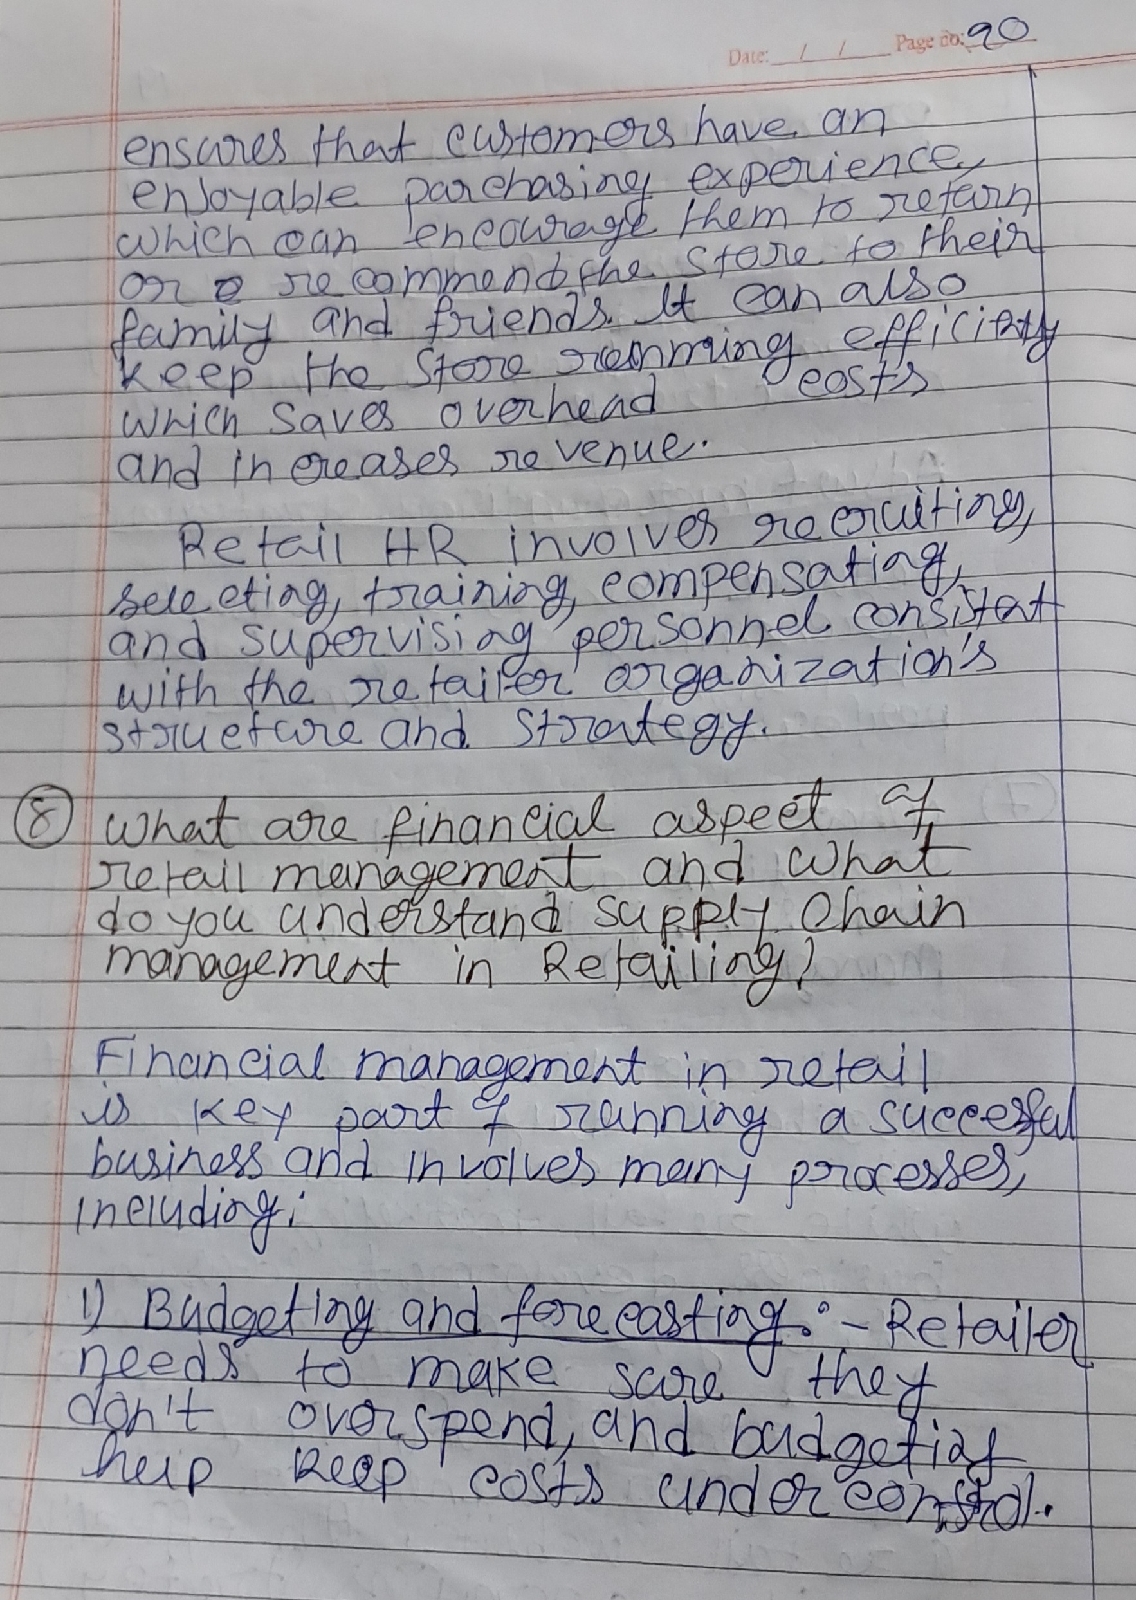 Date: __/__/____ Page no: 90
ensures that customers have an
enjoyable purchasing experience,
which can encourage them to return
or recommend the store to their
family and friends. It can also
keep the store running efficiently
which saves overhead costs
and increases revenue.
Retail HR involves recruiting,
selecting, training, compensating,
and supervising personnel consistent
with the retailer organization's
structure and strategy.
8 What are financial aspect of
retail management and what
do you understand supply chain
management in Retailing?
Financial management in retail
is key part of running a successful
business and involves many processes,
including:
1) Budgeting and forecasting :- Retailer
needs to make sure they
don't overspend, and budgeting
help keep costs under control.